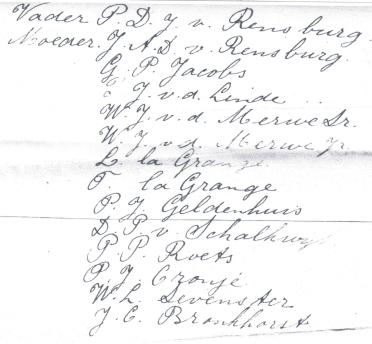 Vader P. D. J. v. Rensburg.
Moeder. J. A. D. v. Rensburg.
G. P. Jacobs
J. v. d. Linde
W. J. v. d. Merwe Sr.
W. J. v. d. Merwe Jr.
L. la Grange
F. la Grange
P. J. Geldenhuis
D. P. v. Schalkwyk
P. P. Roets
P. J. Cronjé
W. L. Levenster
J. C. Bronkhorst